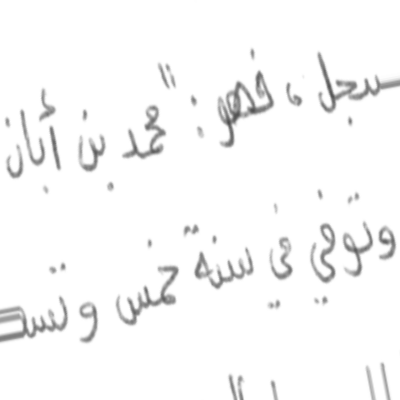 سجل، فهو: "محمد بن أبان
وتوفي في سنة خمس وتسعـ